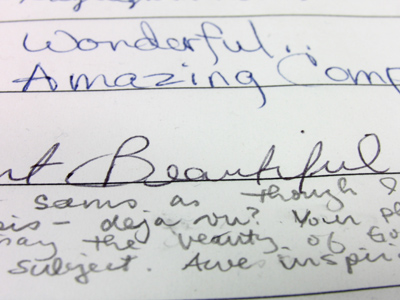 Wonderful..
Amazing Comp
nt Beautiful
seems as though I
is - deja vu? Your p
say the beauty of Go
subject. Awe inspiri